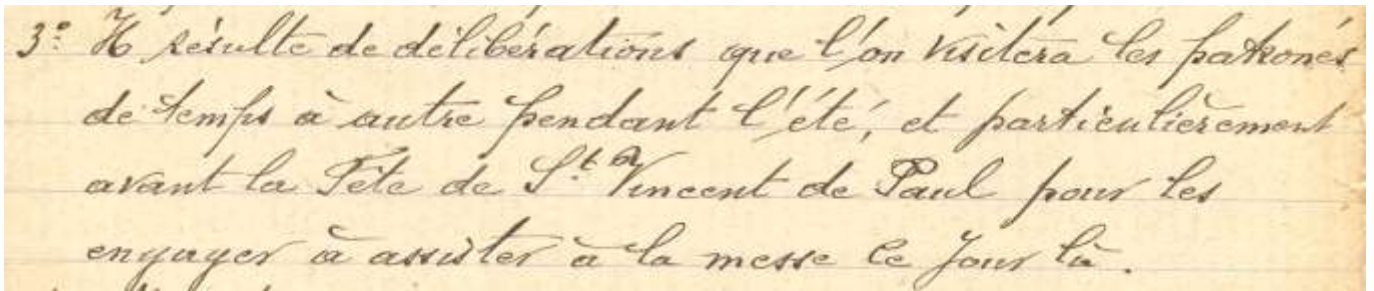 3º Il résulte de délibérations que l'on visitera les patronés
de temps à autre pendant l'été, et particulièrement
avant la Fête de St Vincent de Paul pour les
engager à assister à la messe ce jour là.